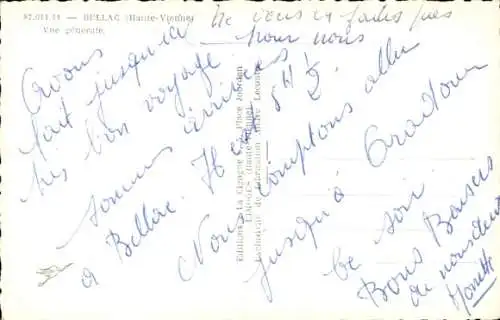 87.011.11 - BELLAC (Haute-Vienne)
Vue générale.
Ne vous en faites pas
pour nous
Avons
fait jusqu'ici
très bon voyage
sommes arrivés
à Bellac. 5H ½.
Nous comptons aller
jusqu'à Oradour
ce soir.
Bons Baisers
de nous deux
Monette
Editions de la Cigogne Place Jourdan
LIMOGES (Haute-Vienne)
Exclusivité de Fabrication André Leconte